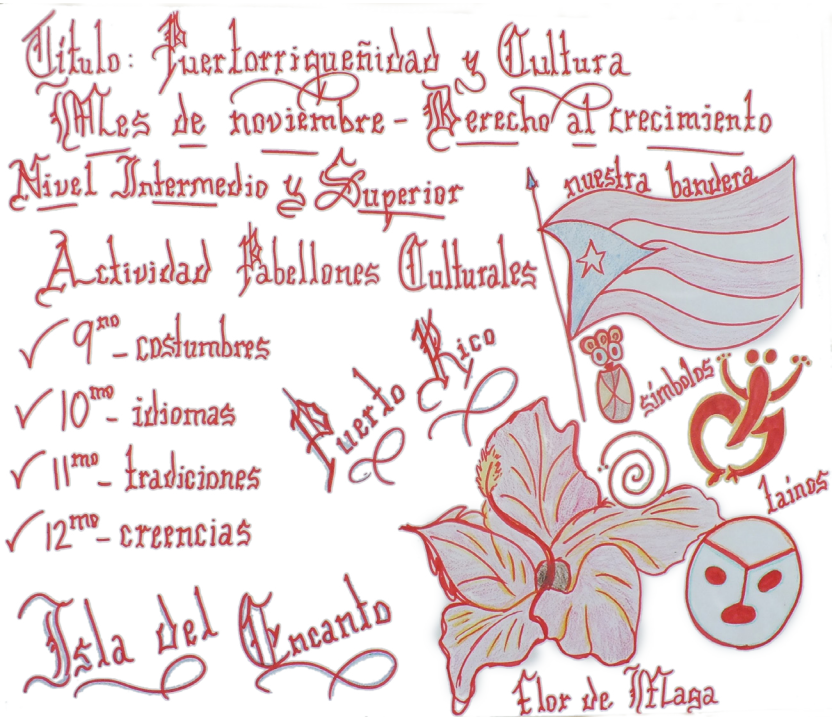 Título: Puertorriqueñidad y Cultura
Mes de noviembre - Derecho al crecimiento
Nivel Intermedio y Superior
nuestra bandera
Actividad Pabellones Culturales
✓ 9no - costumbres
✓ 10mo - idiomas
✓ 11mo - tradiciones
✓ 12mo - creencias
Puerto Rico
símbolos
taínos
Isla del Encanto
Flor de Maga